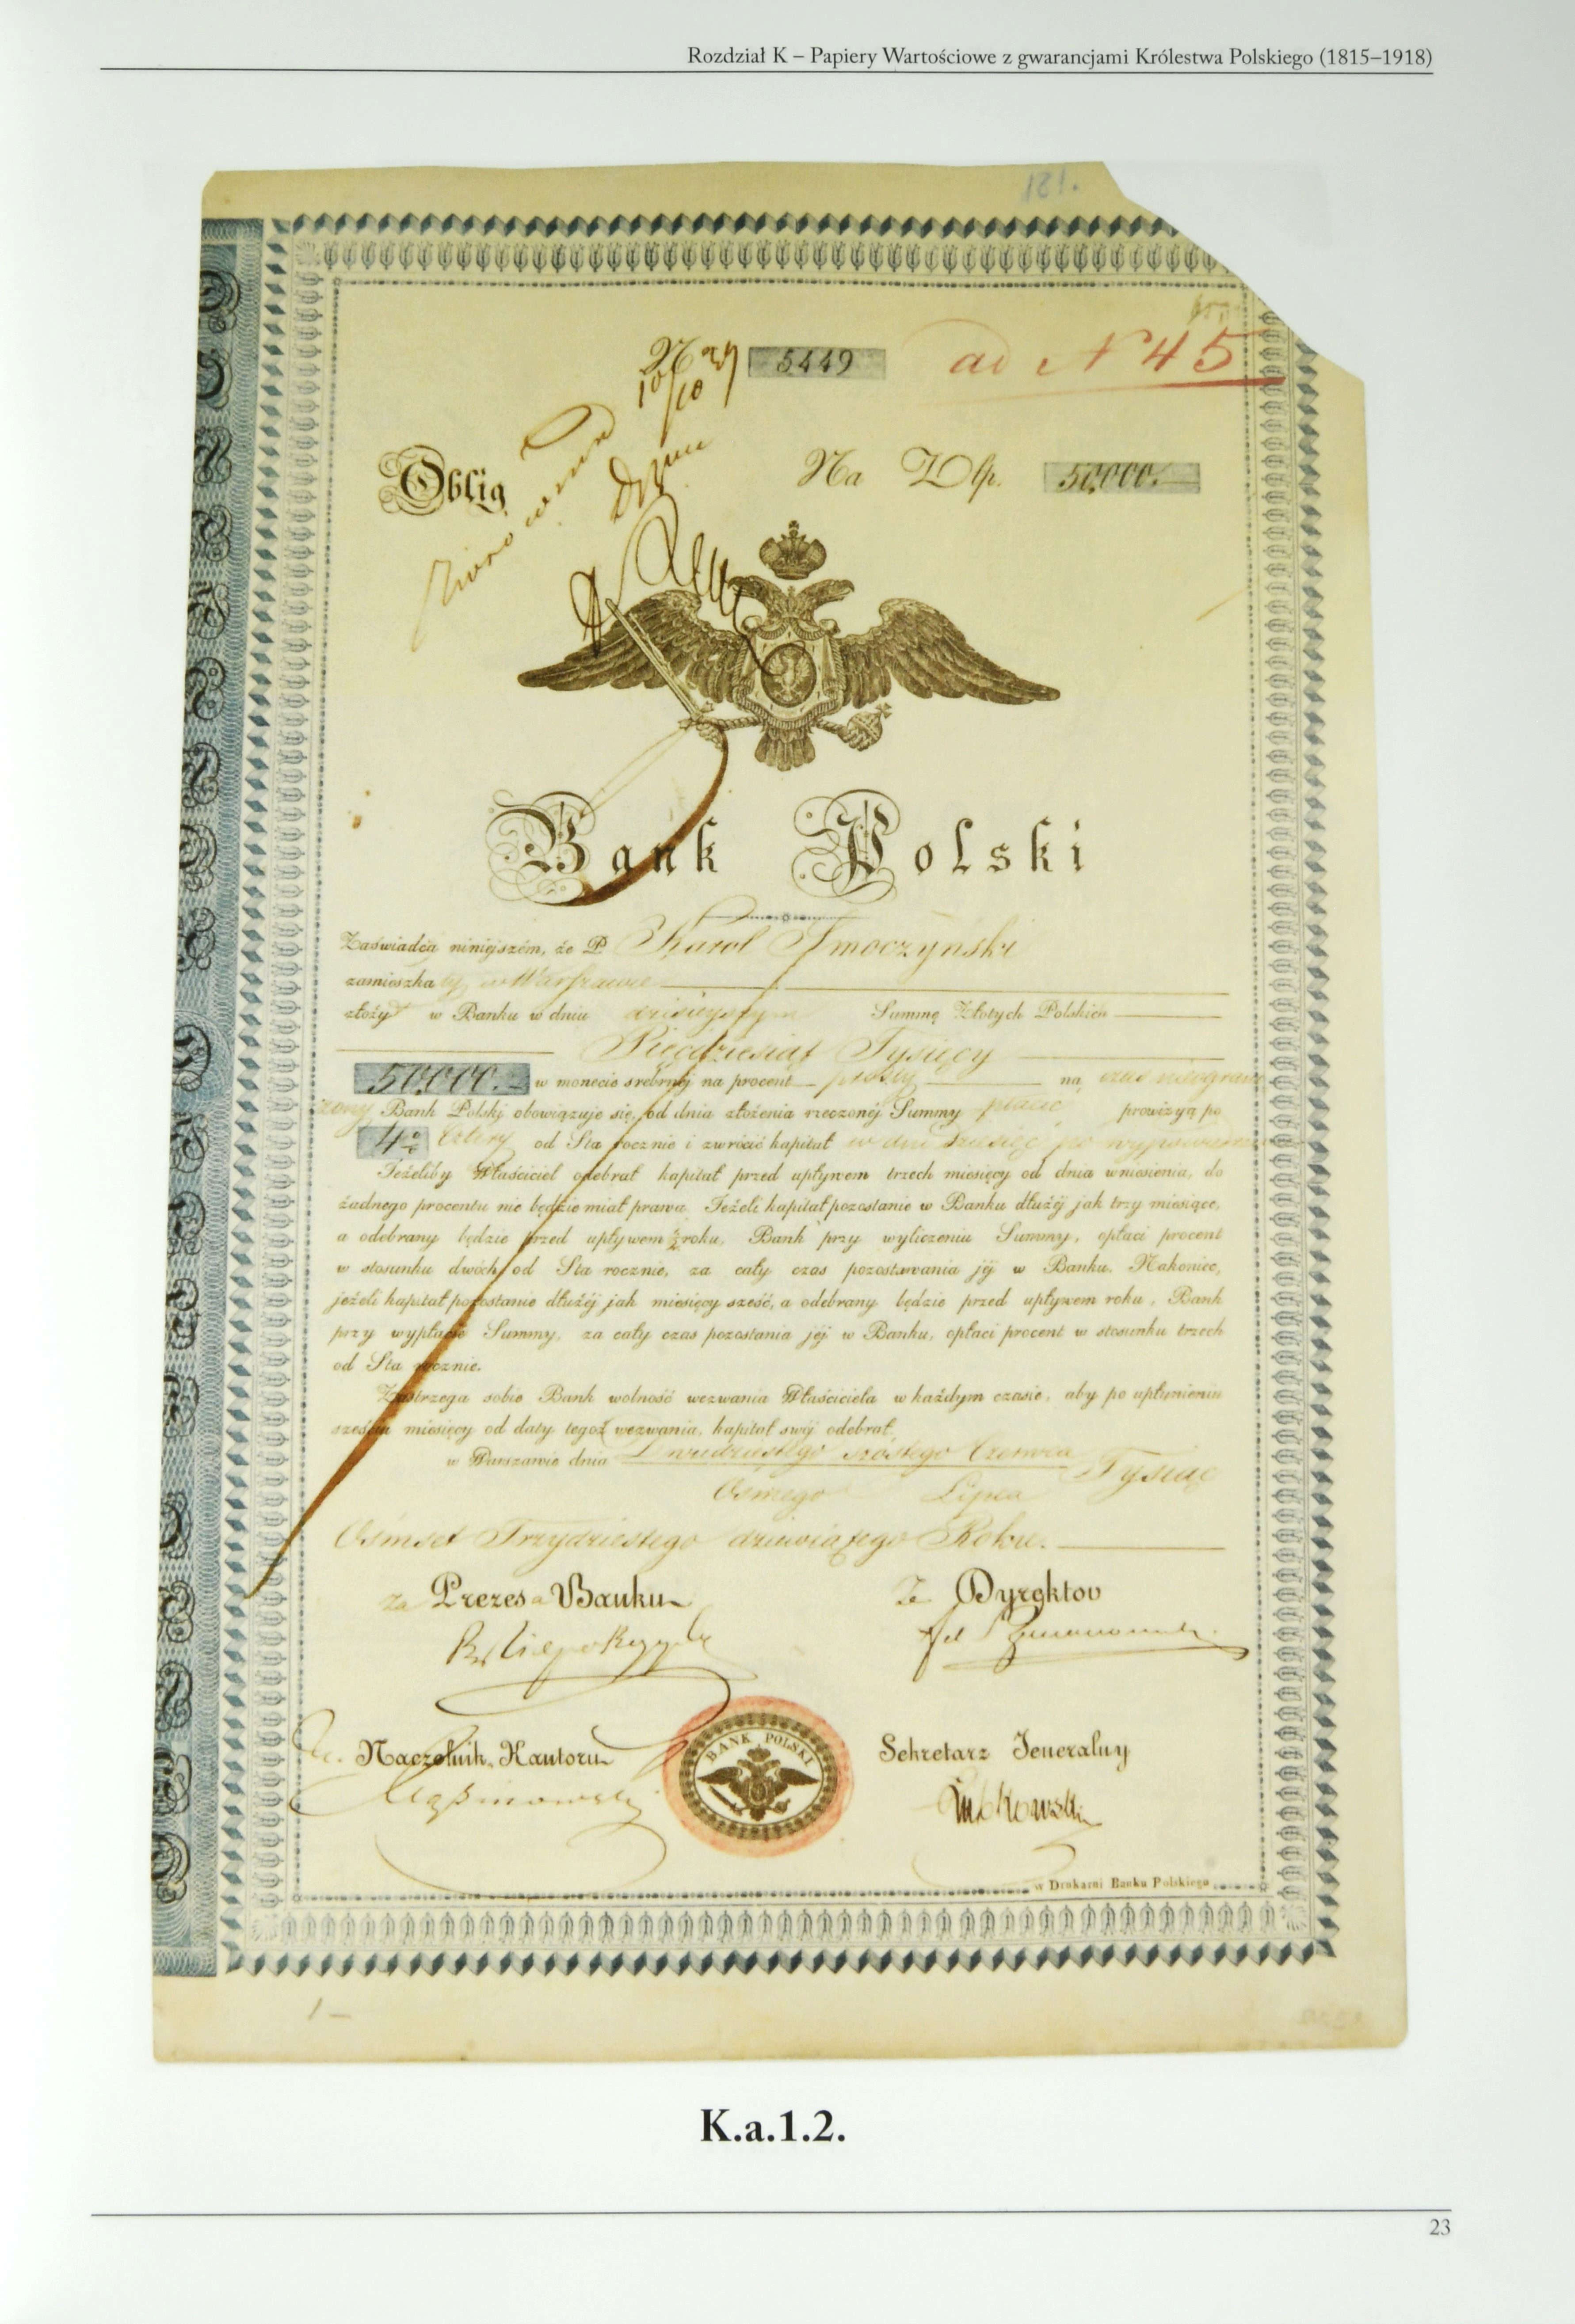 Rozdział K – Papiery Wartościowe z gwarancjami Królestwa Polskiego (1815–1918)
121.
№ 5449 ad N 45
10/10 39
Oblig Na Złp. 50,000.
Bank Polski
Zaświadcza niniejszém, że P Karol Smoczyński
zamieszkały w Warszawie
złożył w Banku w dniu dzisiejszym Summę Złotych Polskich
Pięćdziesiąt Tysięcy
50,000. w monecie srebrnéj na procent prosty na czas nieograni
czony Bank Polski obowiązuje się, od dnia złożenia rzeczonéj Summy płacić prowizyą po
4% cztery od Sta rocznie i zwrócić kapitał w dni dziesięć po wypowiedzeniu
Jeżeliby Właściciel odebrał kapitał przed upływem trzech miesięcy od dnia wniesienia, do
żadnego procentu nie będzie miał prawa. Jeżeli kapitał pozostanie w Banku dłużéj jak trzy miesiące,
a odebrany będzie przed upływem ½ roku, Bank przy wyliczeniu Summy, opłaci procent
w stosunku dwóch od Sta rocznie, za cały czas pozostawania jéj w Banku. Nakoniec,
jeżeli kapitał pozostanie dłużéj jak miesięcy sześć, a odebrany będzie przed upływem roku, Bank
przy wypłacie Summy, za cały czas pozostania jéj w Banku, opłaci procent w stosunku trzech
od Sta rocznie.
Zastrzega sobie Bank wolność wezwania Właściciela w każdym czasie, aby po upłynieniu
sześciu miesięcy od daty tegoż wezwania, kapitał swój odebrał.
w Warszawie dnia Dwudziestego szóstego Czerwca Tysiąc
Osmego Lipca
Ośmset Trzydziestego dziewiątego Roku.
za Prezesa Banku Za Dyrektor
Naczelnik Kantoru Sekretarz Jeneralny
BANK POLSKI
Łubkowski
w Drukarni Banku Polskiego
K.a.1.2.
23